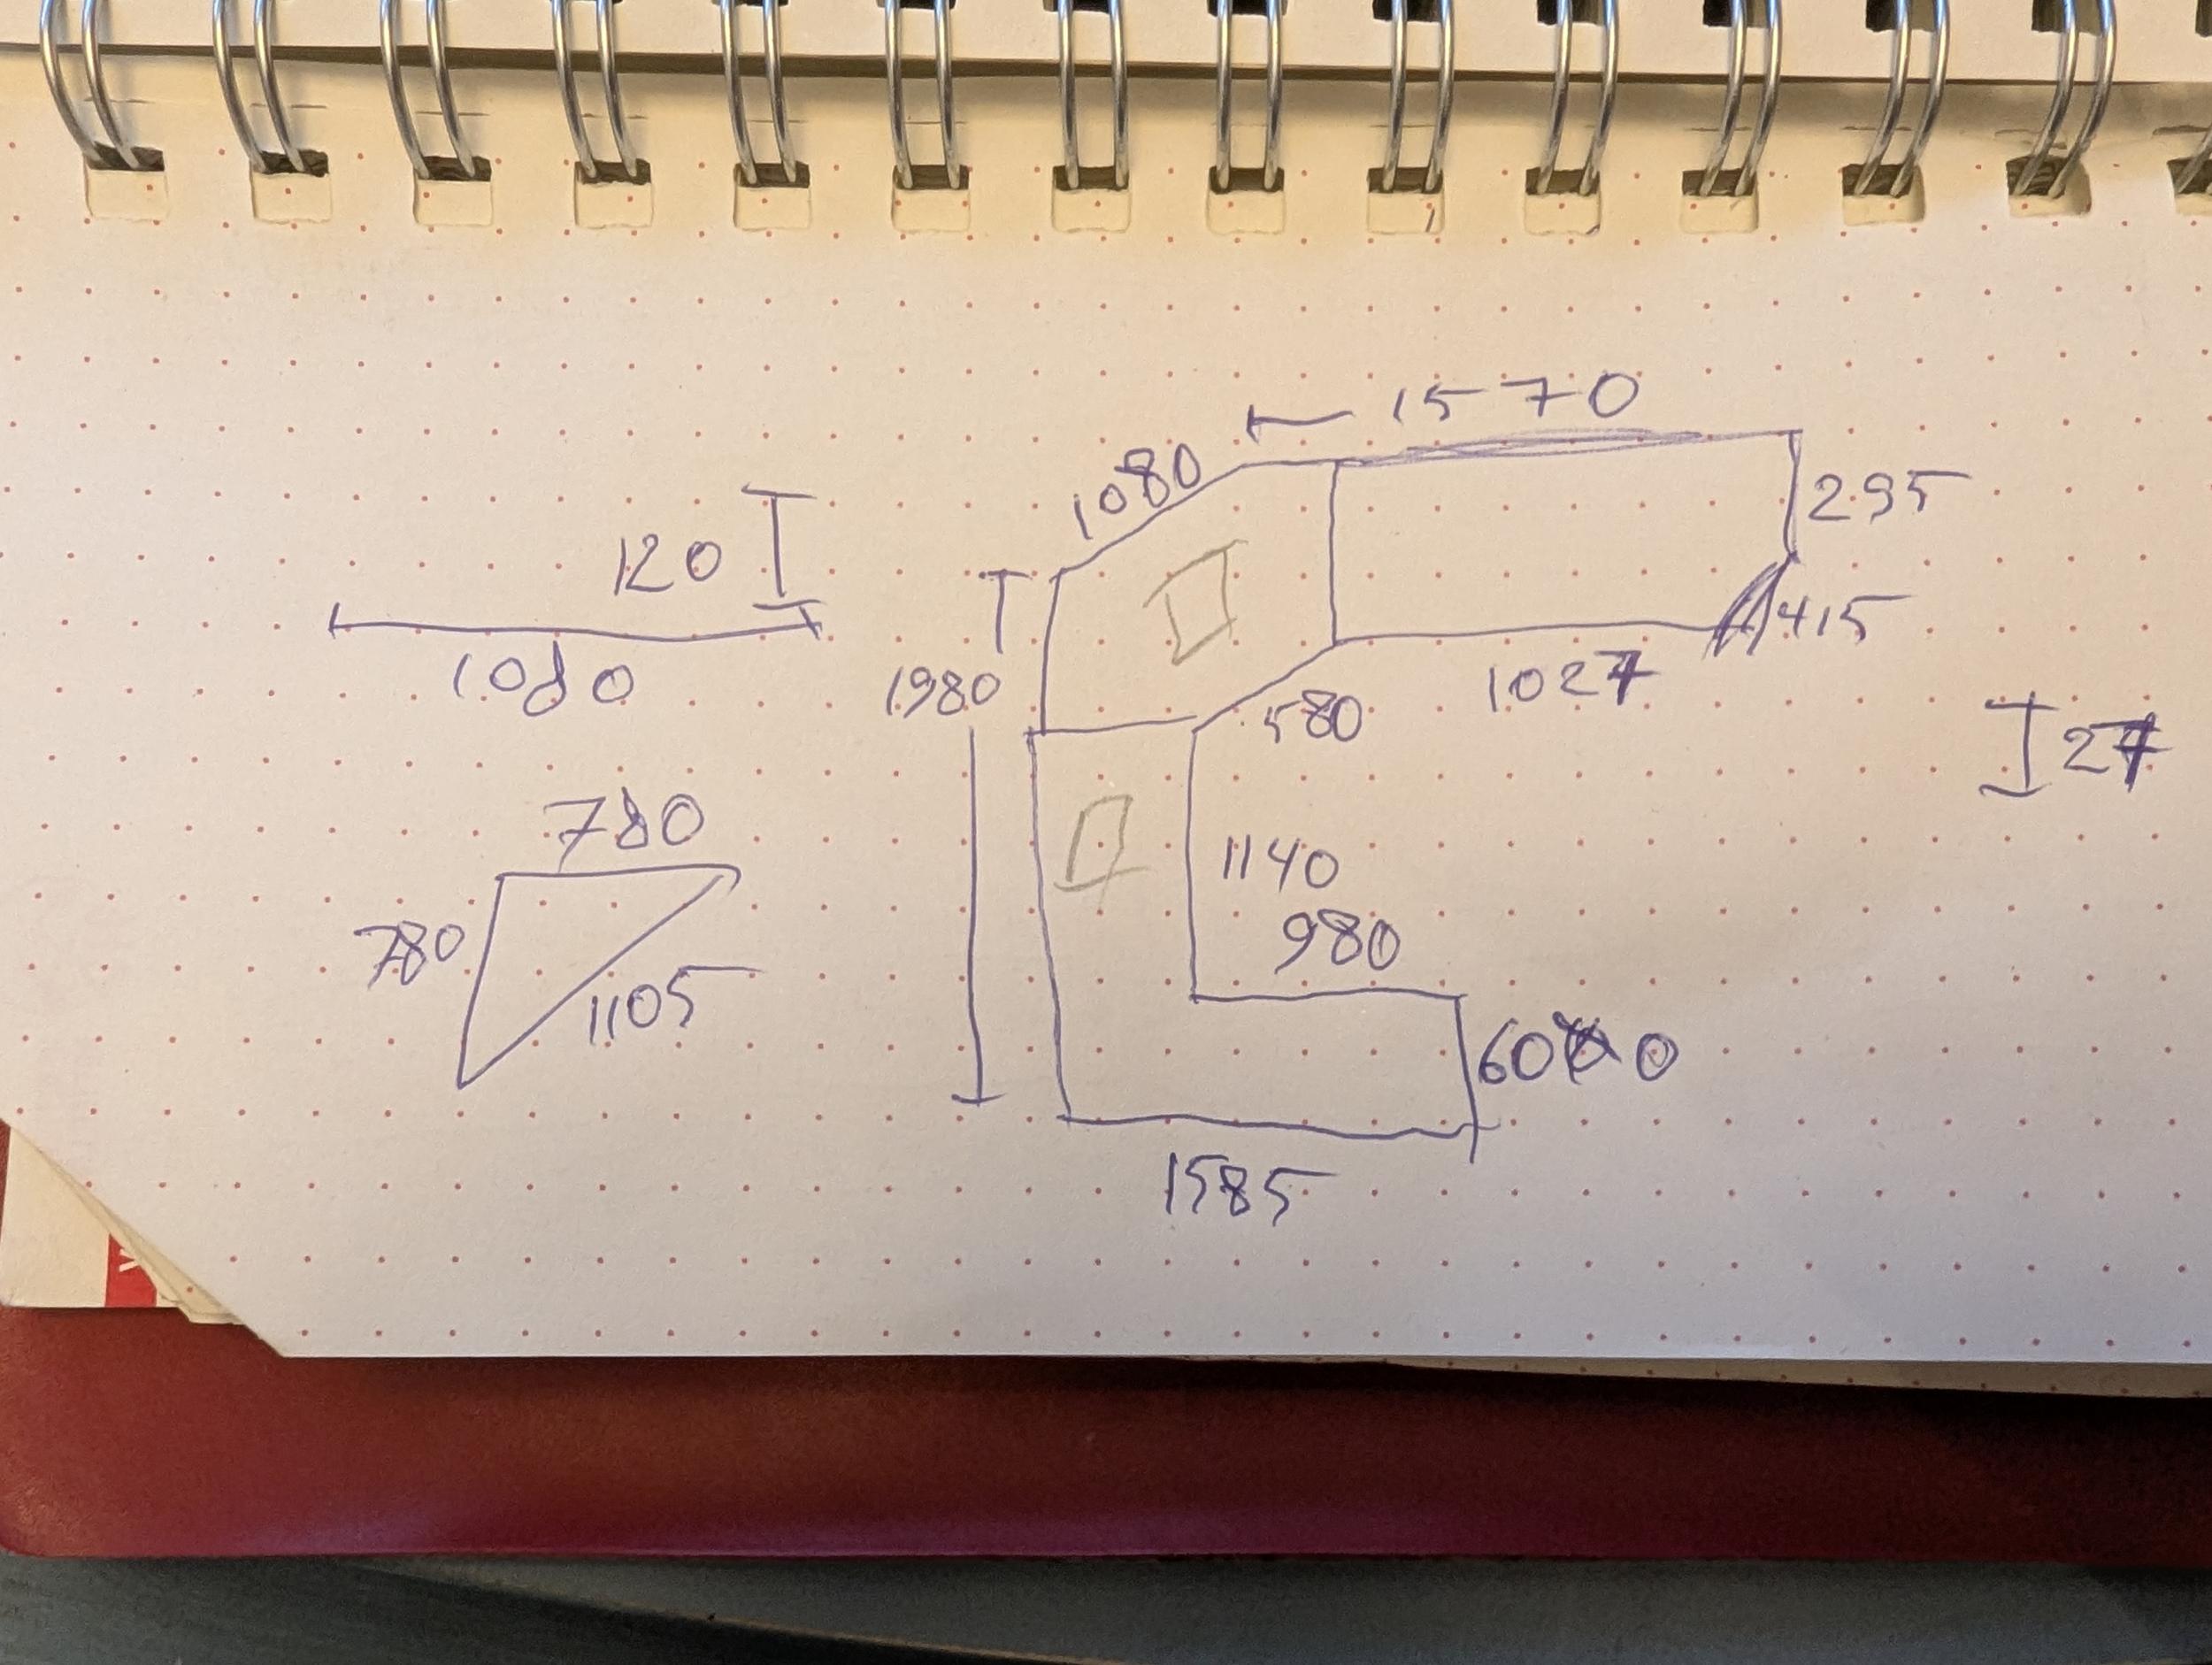 1570
1080
295
120
415
1080
1980
1027
580
27
780
1140
780
980
1105
600
1585